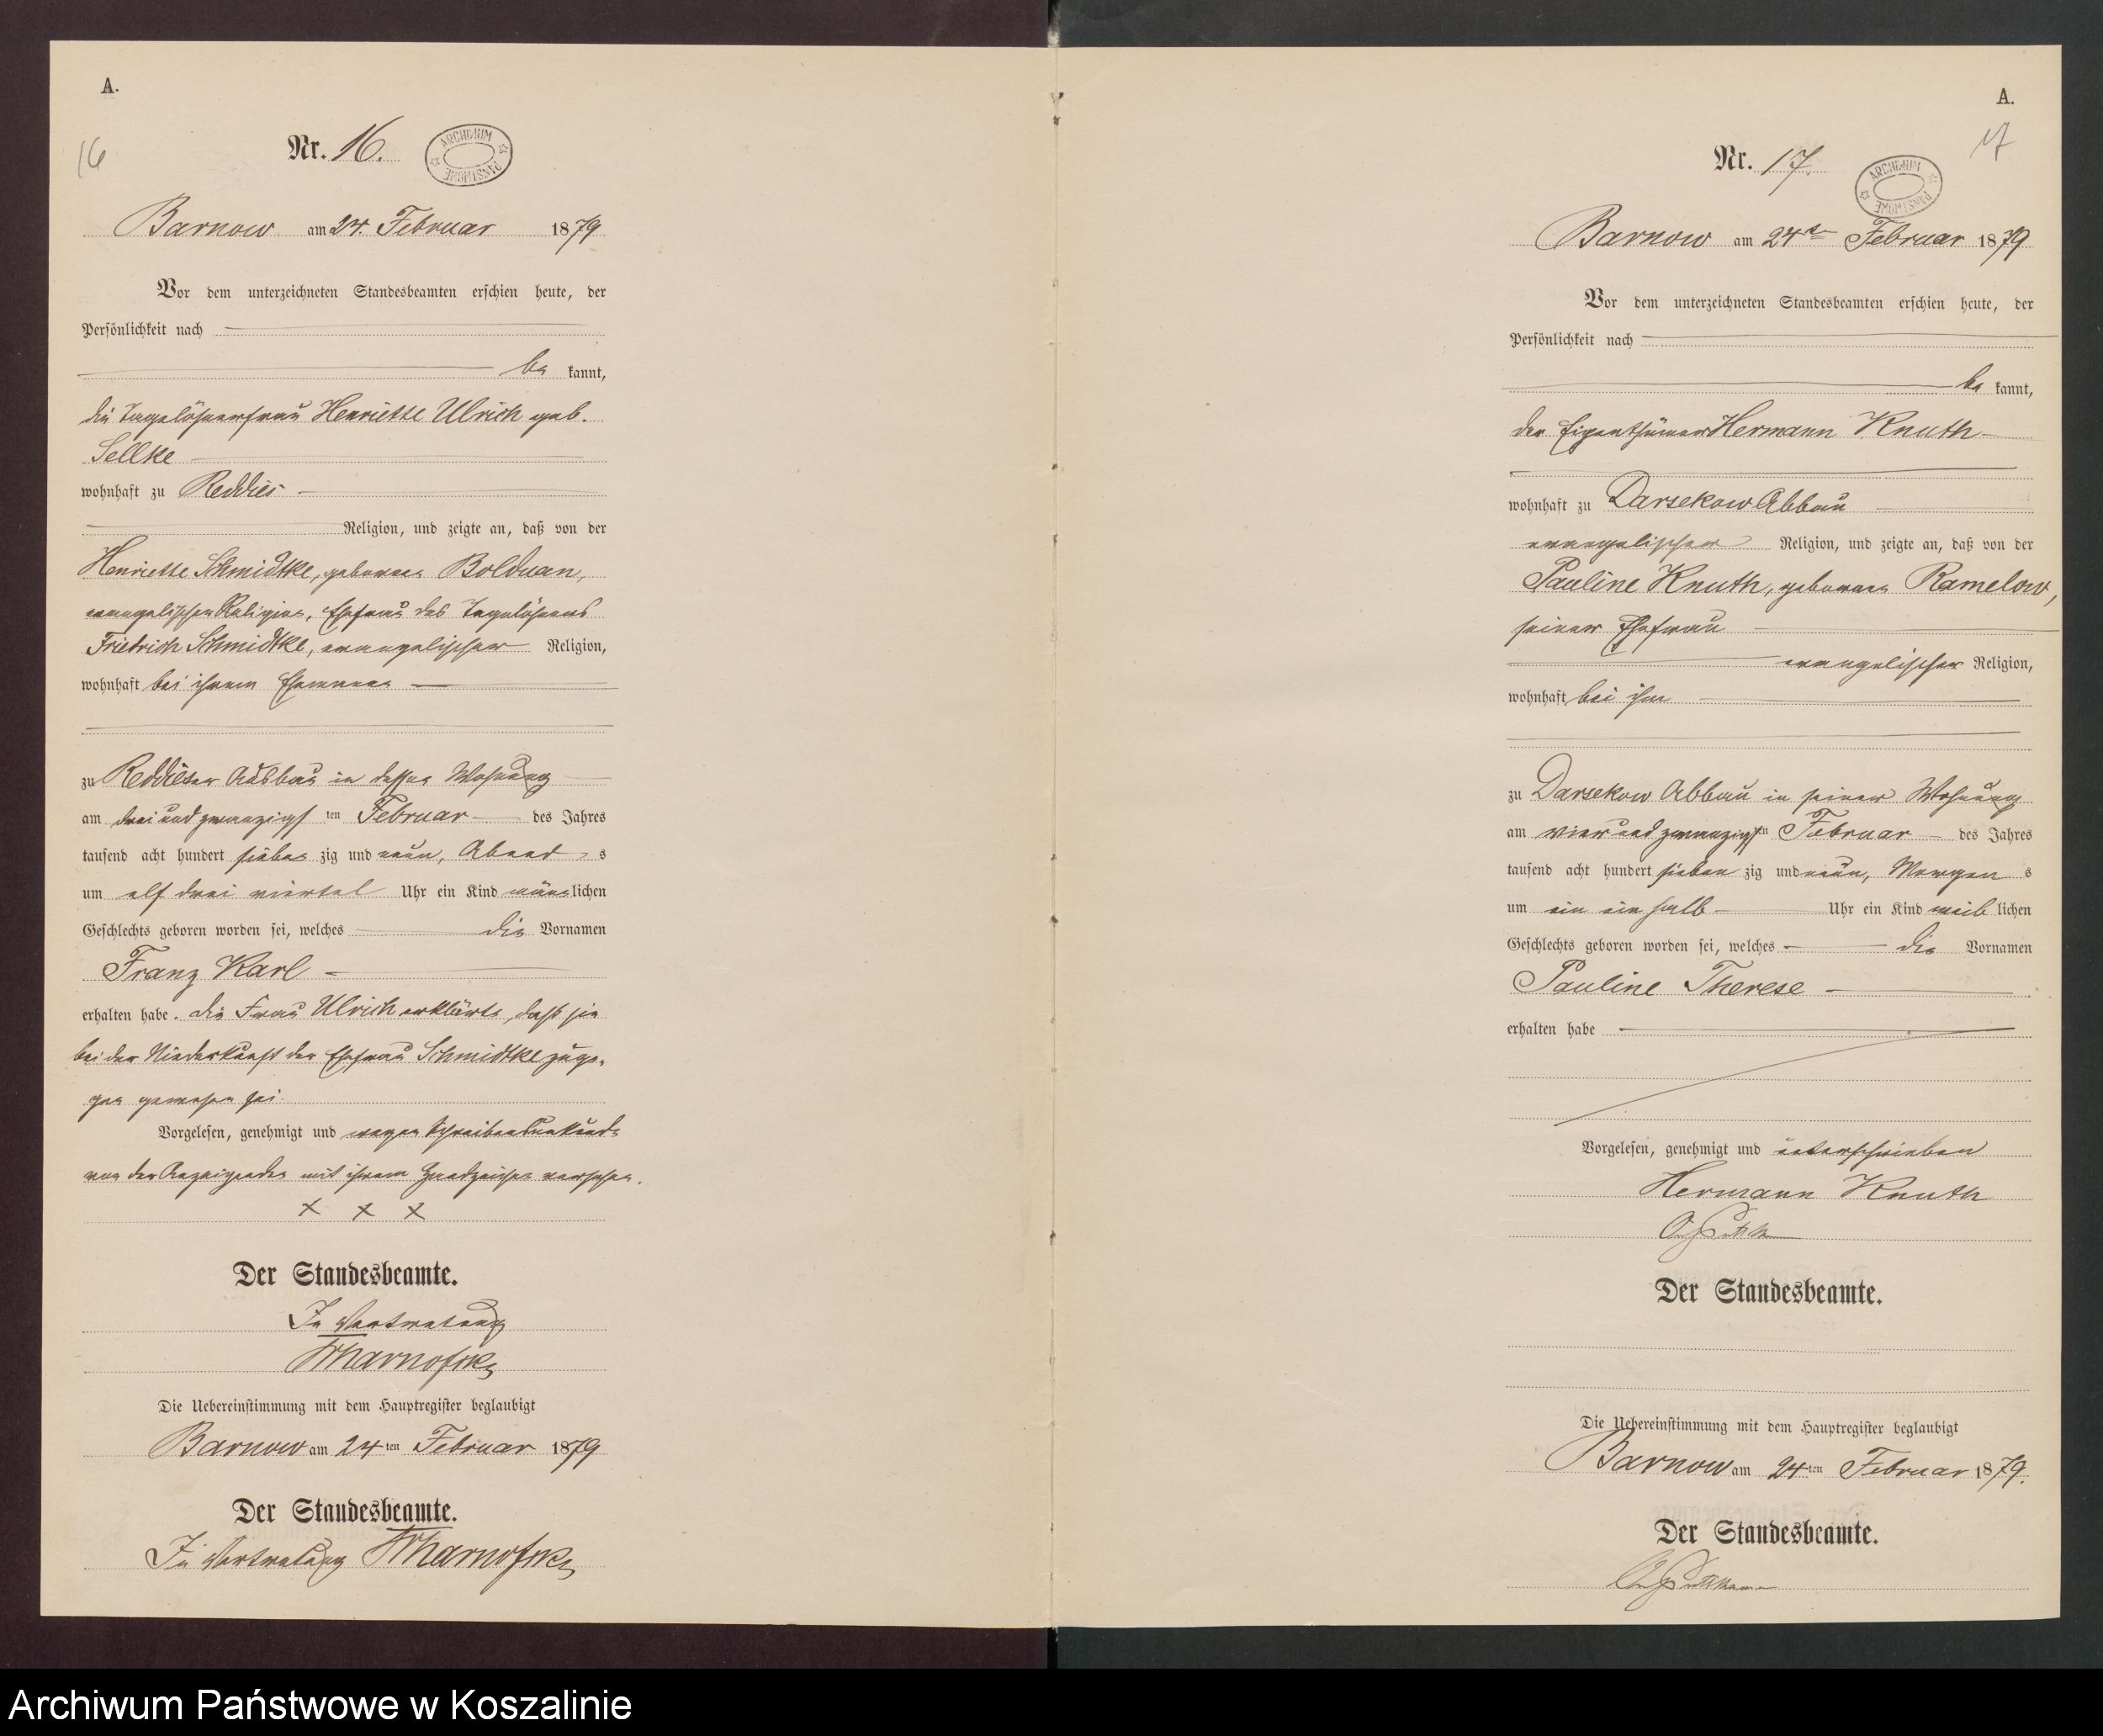 A.
16
Nr. 16.
ARCHIWUM PAŃSTWOWE
Barnow am 24. Februar 1879
Vor dem unterzeichneten Standesbeamten erschien heute, der
Persönlichkeit nach
be kannt,
die Tagelöhnerfrau Henriette Ulrich geb.
Sellke
wohnhaft zu Reddies
Religion, und zeigte an, daß von der
Henriette Schmidtke, geborenen Bolduan,
evangelischer Religion, Ehefrau des Tagelöhners
Friedrich Schmidtke, evangelischer Religion,
wohnhaft bei ihrem Ehemanne
zu Reddieser Ausbau in dessen Wohnung
am drei und zwanzigsten Februar des Jahres
tausend acht hundert sieben zig und neun, Abends
um elf drei viertel Uhr ein Kind männlichen
Geschlechts geboren worden sei, welches die Vornamen
Franz Karl
erhalten habe. Die Frau Ulrich erklärte, daß sie
bei der Niederkunft der Ehefrau Schmidtke zuge-
gen gewesen sei.
Vorgelesen, genehmigt und wegen Schreibensunkunde
von der Anzeigenden mit ihrem Handzeichen versehen.
x x x
Der Standesbeamte.
In Vertretung
Die Uebereinstimmung mit dem Hauptregister beglaubigt
Barnow am 24ten Februar 1879
Der Standesbeamte.
In Vertretung
A.
17
Nr. 17.
ARCHIWUM PAŃSTWOWE
Barnow am 24ten Februar 1879
Vor dem unterzeichneten Standesbeamten erschien heute, der
Persönlichkeit nach
be kannt,
der Eigenthümer Hermann Knuth
wohnhaft zu Darsekow Abbau
evangelischer Religion, und zeigte an, daß von der
Pauline Knuth, geborenen Ramelow,
seiner Ehefrau
evangelischer Religion,
wohnhaft bei ihm
zu Darsekow Abbau in seiner Wohnung
am vier und zwanzigsten Februar des Jahres
tausend acht hundert sieben zig und neun, Morgens
um ein ein halb Uhr ein Kind weiblichen
Geschlechts geboren worden sei, welches die Vornamen
Pauline Therese
erhalten habe
Vorgelesen, genehmigt und unterschrieben
Hermann Knuth
Der Standesbeamte.
Die Uebereinstimmung mit dem Hauptregister beglaubigt
Barnow am 24ten Februar 1879.
Der Standesbeamte.
Archiwum Państwowe w Koszalinie